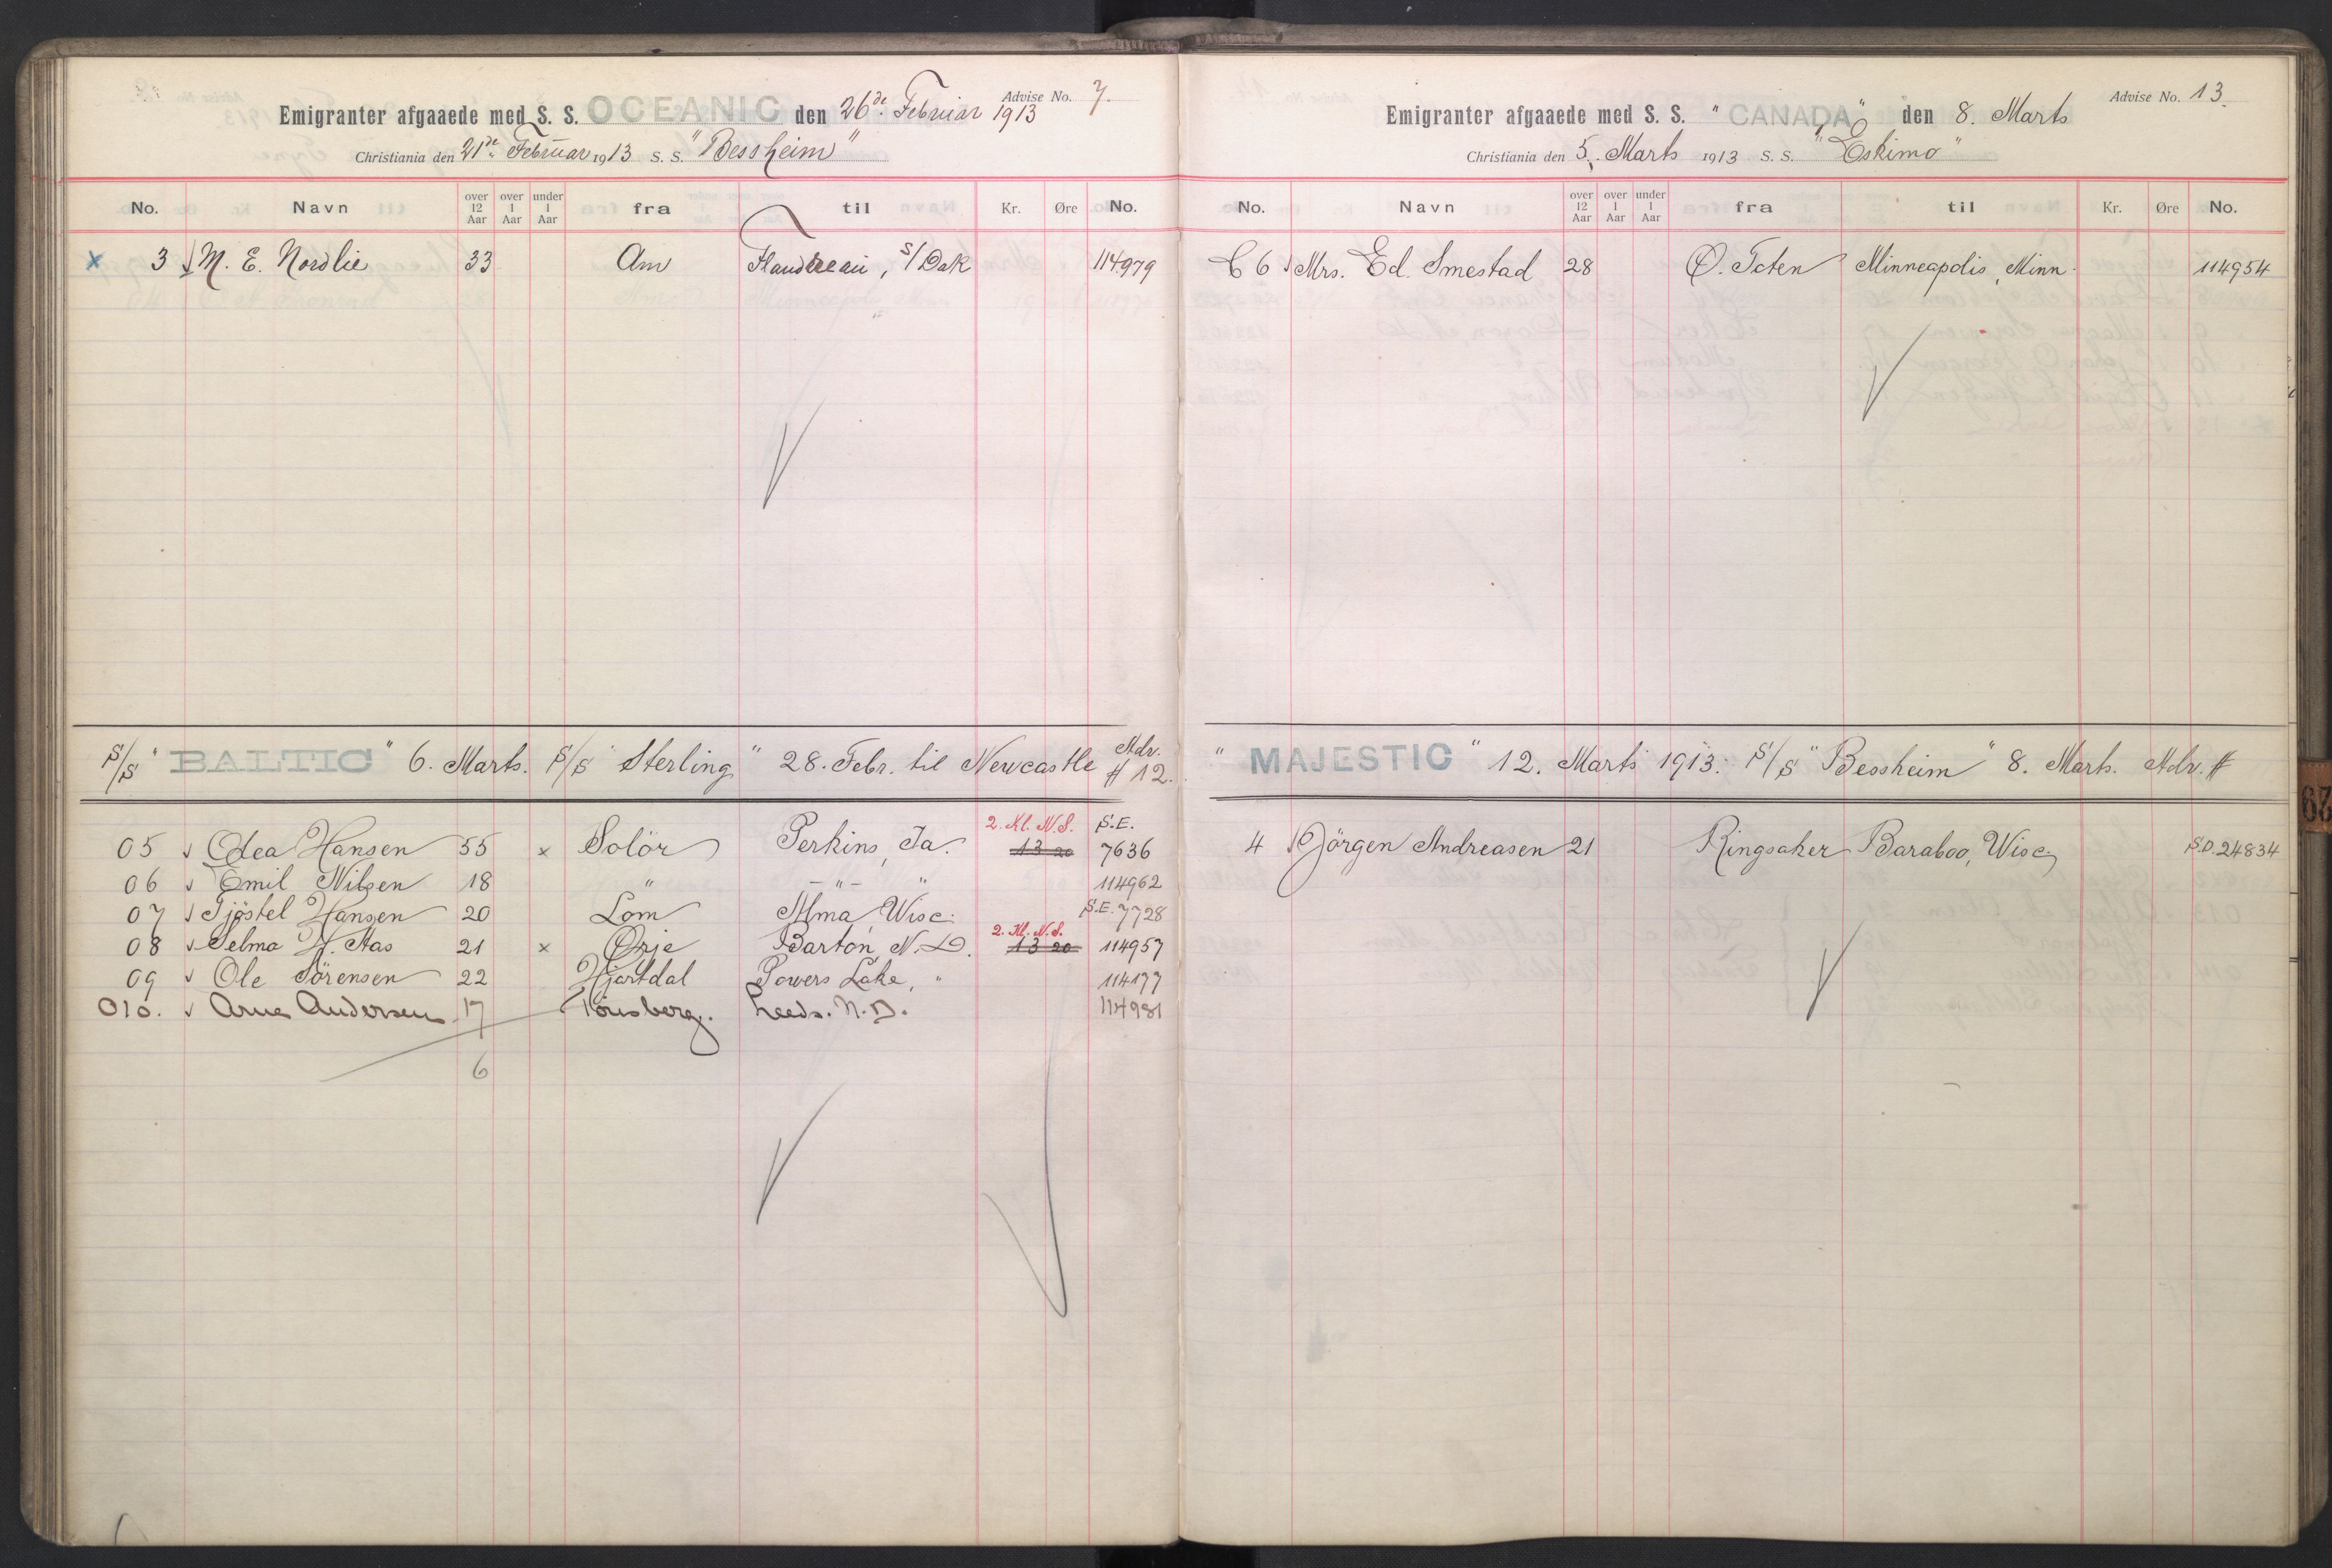 Advise No. 7.
Emigranter afgaaede med S. S. OCEANIC den 26de Februar 1913
Christiania den 21de Februar 1913 S. S. "Bessheim"
No. Navn over 12 Aar over 1 Aar under 1 Aar fra til Kr. Øre No.
x 3 M. E. Nordlie 33 Am Flandreau, S/Dak 114979
S/S "BALTIC" 6. Marts. S/S "Sterling" 28. Febr. til Newcastle Adv. # 12.
2. Kl. N.S. S.E.
05 Odea Hansen 55 x Solör Perkins, Ia. 13 20 7636
06 Emil Nilsen 18 " -"- " 114962
07 Tjöstel Hansen 20 Lom Alma Wisc. S.E. 7728
2. Kl. N.S.
08 Selma H. Aas 21 x Ørje Barton, N.D. 13 20 114957
09 Ole Sörensen 22 Hjartdal Powers Lake, " 114177
010. Arne Andersen 17 Tönsberg. Leeds. N.D. 114981
6
Advise No. 13.
Emigranter afgaaede med S. S. "CANADA" den 8. Marts
Christiania den 5. Marts 1913 S. S. "Eskimo"
No. Navn over 12 Aar over 1 Aar under 1 Aar fra til Kr. Øre No.
C 6 Mrs. Ed. Smestad 28 Ø. Toten Minneapolis, Minn. 114954
"MAJESTIC" 12. Marts 1913. S/S "Bessheim" 8. Marts. Adv. #
4 Jörgen Andreasen 21 Ringsaker Baraboo, Wisc. S.D. 24834
29